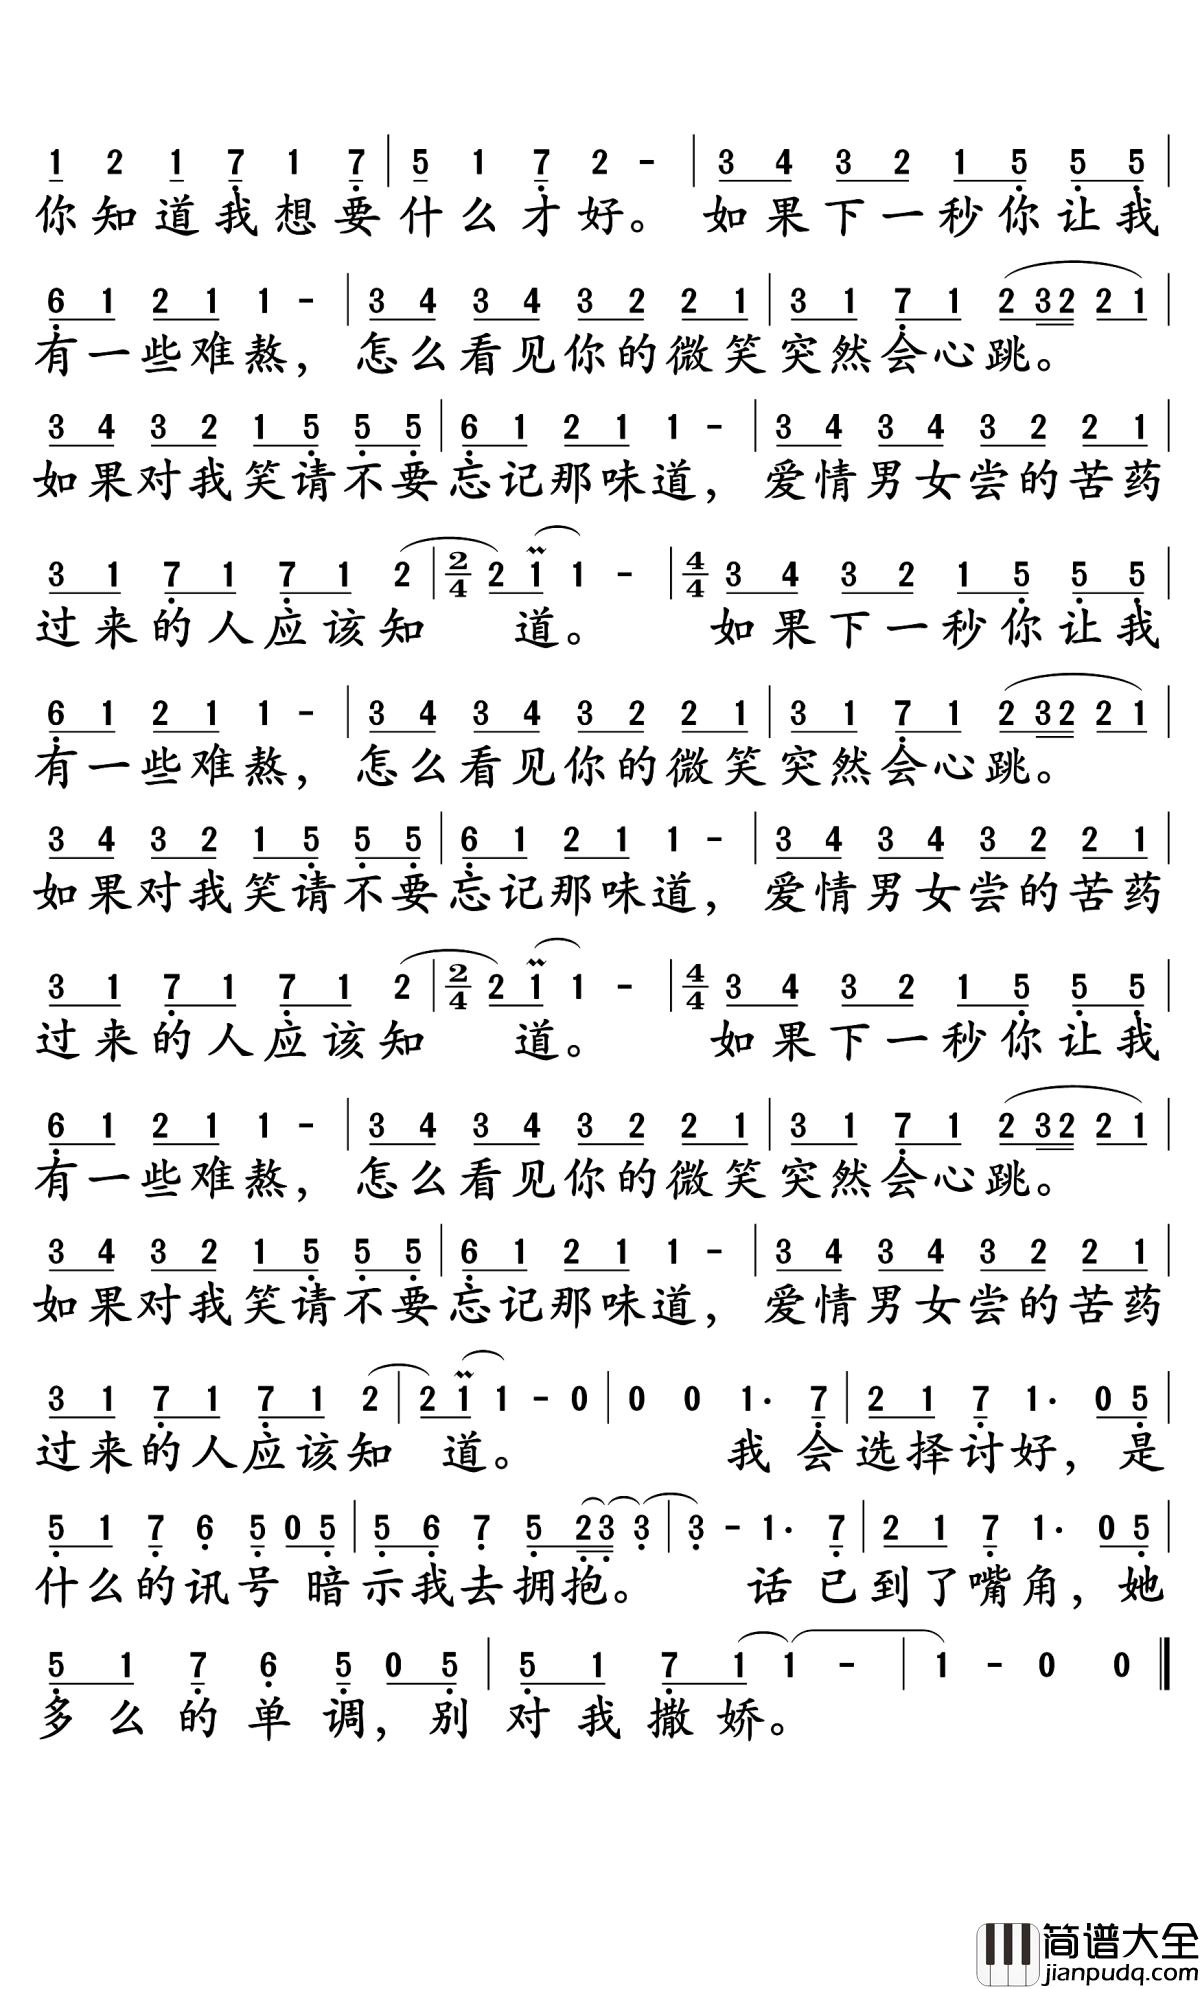 1 2 1 7 1 7 | 5 1 7 2 - | 3 4 3 2 1 5 5 5 |
你知道我想要什么才好。如果下一秒你让我
6 1 2 1 1 - | 3 4 3 4 3 2 2 1 | 3 1 7 1 2 3 2 2 1 |
有一些难熬，怎么看见你的微笑突然会心跳。
3 4 3 2 1 5 5 5 | 6 1 2 1 1 - | 3 4 3 4 3 2 2 1 |
如果对我笑请不要忘记那味道，爱情男女尝的苦药
3 1 7 1 7 1 2 | 2/4 2 1 1 - | 4/4 3 4 3 2 1 5 5 5 |
过来的人应该知 道。 如果下一秒你让我
6 1 2 1 1 - | 3 4 3 4 3 2 2 1 | 3 1 7 1 2 3 2 2 1 |
有一些难熬，怎么看见你的微笑突然会心跳。
3 4 3 2 1 5 5 5 | 6 1 2 1 1 - | 3 4 3 4 3 2 2 1 |
如果对我笑请不要忘记那味道，爱情男女尝的苦药
3 1 7 1 7 1 2 | 2/4 2 1 1 - | 4/4 3 4 3 2 1 5 5 5 |
过来的人应该知 道。 如果下一秒你让我
6 1 2 1 1 - | 3 4 3 4 3 2 2 1 | 3 1 7 1 2 3 2 2 1 |
有一些难熬，怎么看见你的微笑突然会心跳。
3 4 3 2 1 5 5 5 | 6 1 2 1 1 - | 3 4 3 4 3 2 2 1 |
如果对我笑请不要忘记那味道，爱情男女尝的苦药
3 1 7 1 7 1 2 | 2 1 1 - 0 | 0 0 1· 7 | 2 1 7 1· 0 5 |
过来的人应该知 道。 我会选择讨好，是
5 1 7 6 5 0 5 | 5 6 7 5 2 3 3 | 3 - 1· 7 | 2 1 7 1· 0 5 |
什么的讯号暗示我去拥抱。 话已到了嘴角，她
5 1 7 6 5 0 5 | 5 1 7 1 1 - | 1 - 0 0 ‖
多么的单调，别对我撒娇。
简谱大全
jianpudq.com